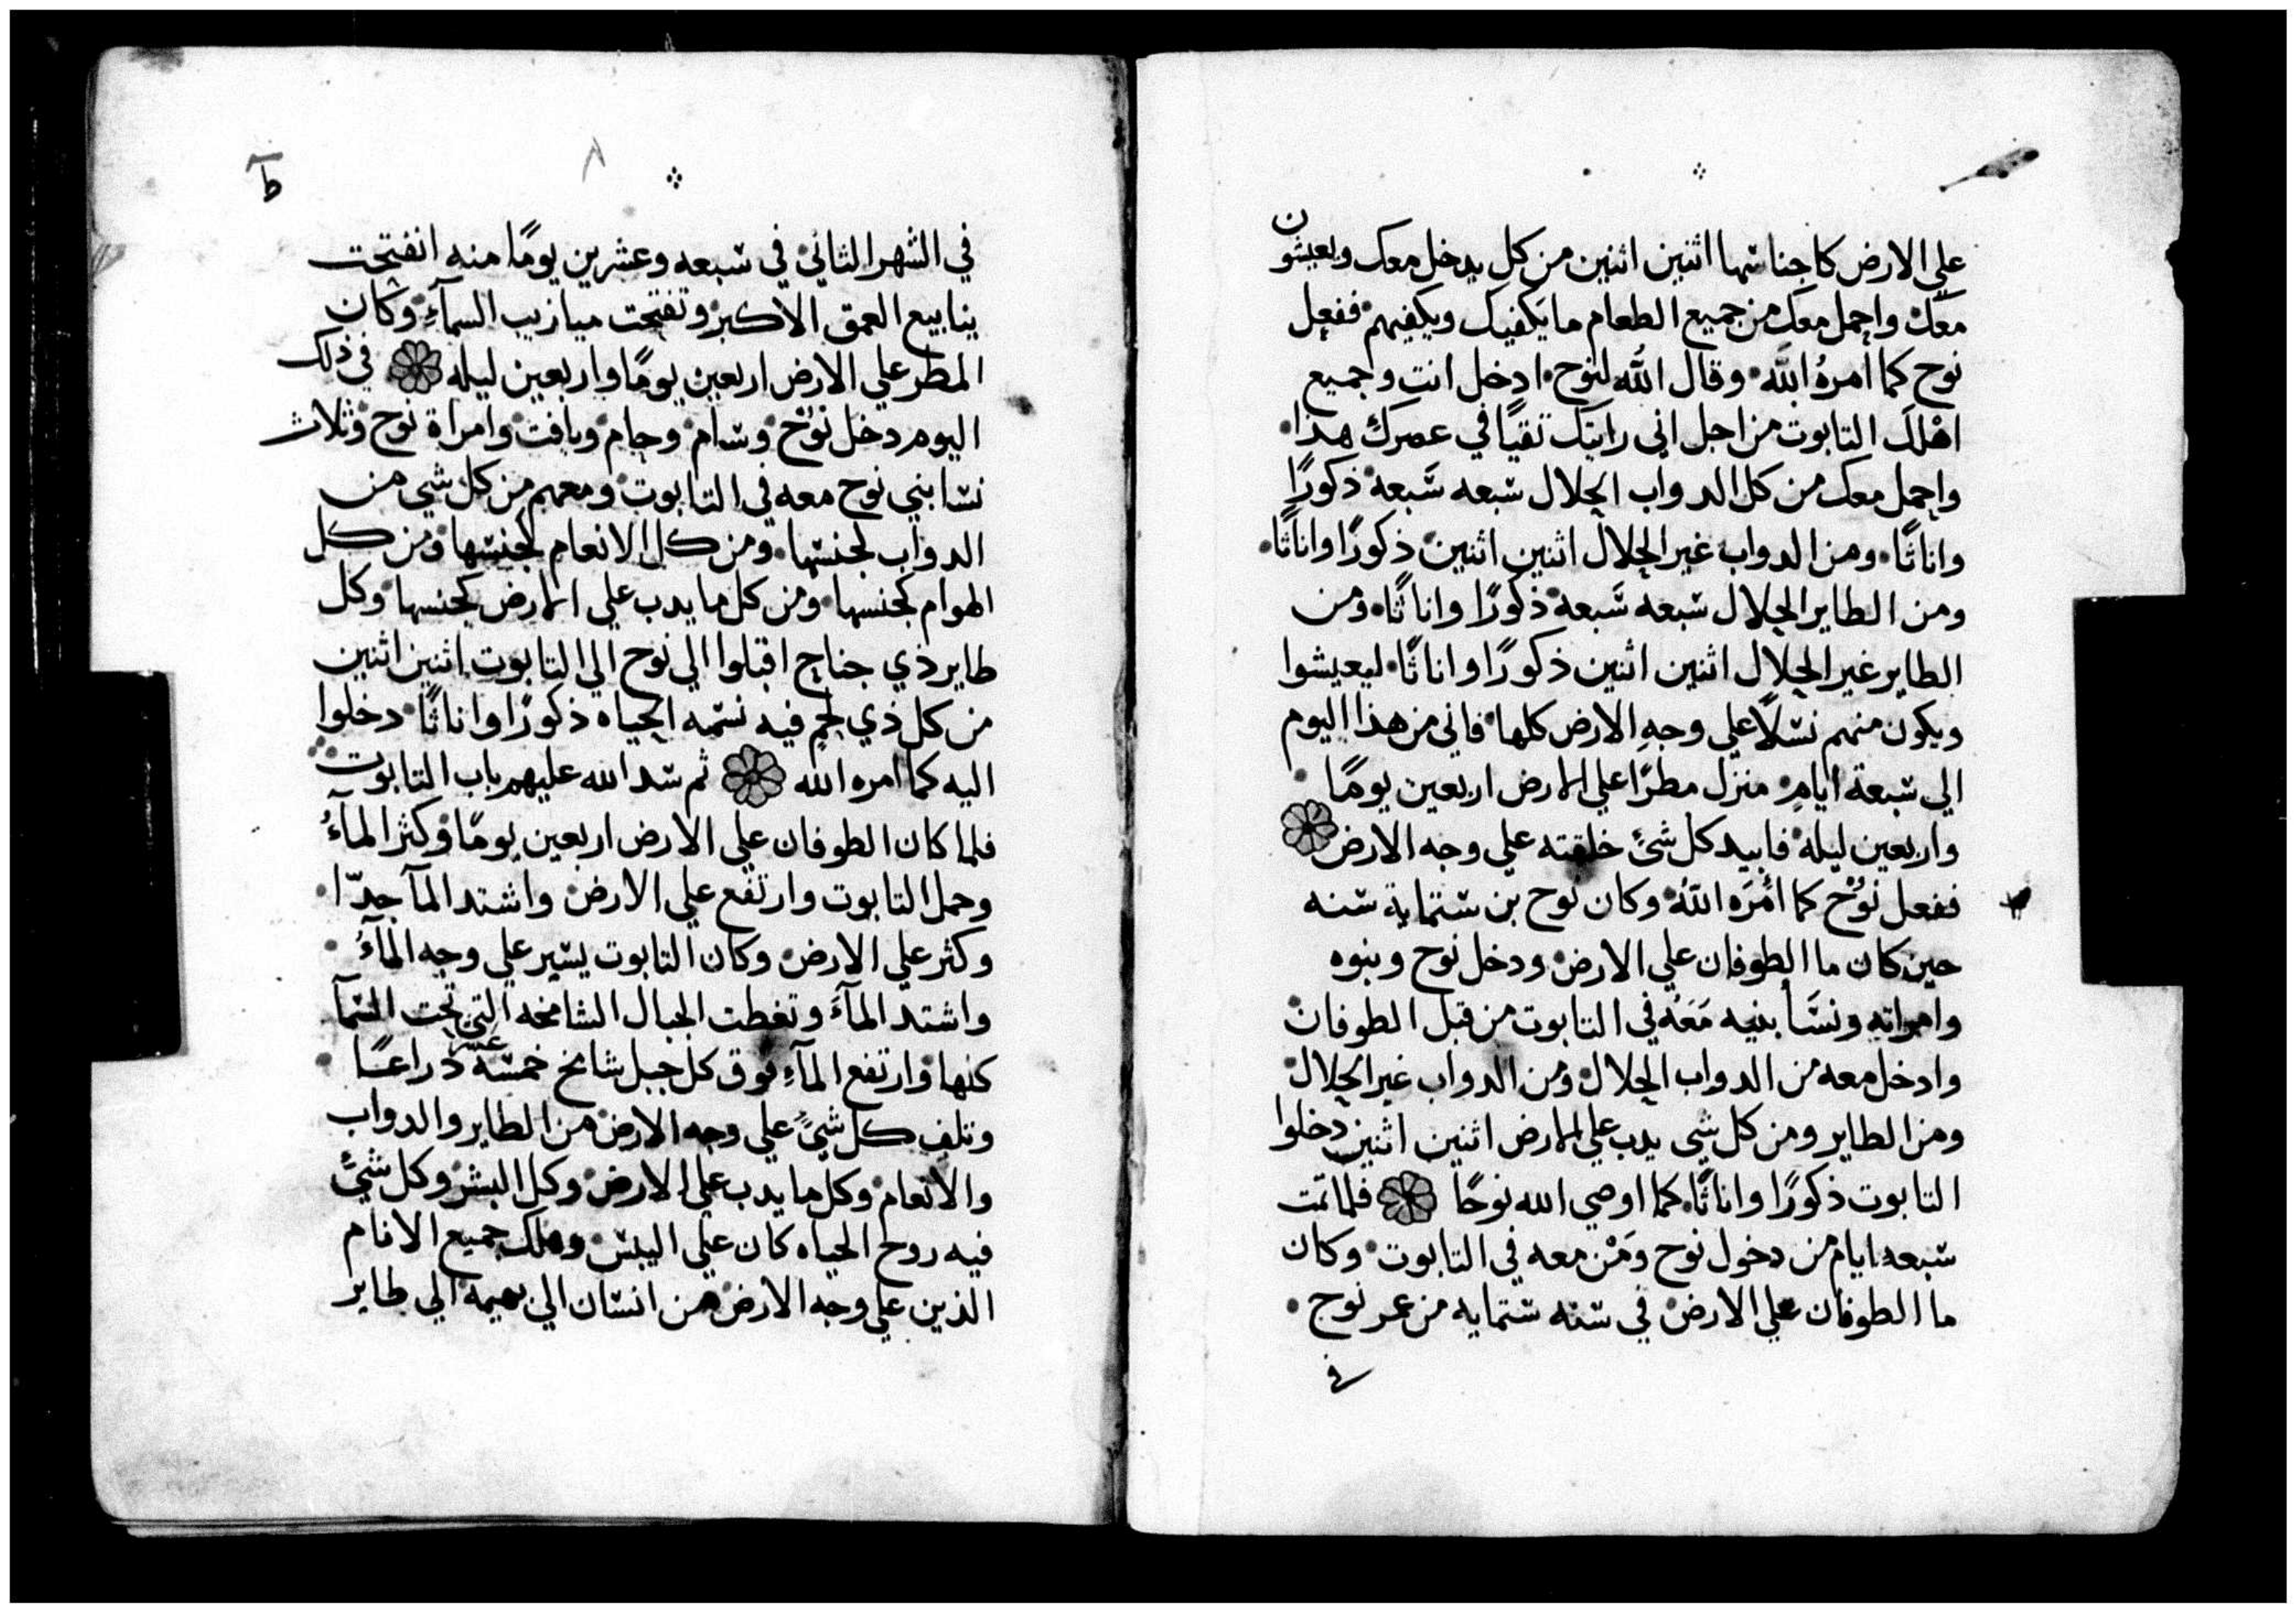 علي الارض كاجناسها اثنين اثنين من كل يدخل معك ويعيشون
معك واحمل معك من جميع الطعام ما يكفيك ويكفيهم ففعل
نوح كما امرهُ اللّه وقال اللّه لنوح ادخل انت وجميع
اهلك التابوت من اجل اني رايتك تقيًا في عصرك هذا
واحمل معك من كل الدواب الحلال سبعه سَبعة ذكورًا
واناثًا ومن الدواب غير الحلال اثنين اثنين ذكورًا واناثًا
ومن الطاير الحلال سبعه سَبعة ذكورًا واناثًا ومن
الطاير غير الحلال اثنين اثنين ذكورًا واناثًا ليعيشوا
ويكون منهم نسلًا علي وجهِ الارض كلها فاني من هذا اليوم
الي سبعة ايامٍ منزل مطرًا علي الارض اربعين يومًا
واربعين ليلة فابيد كل شئ خلقته علي وجه الارض
ففعل نوُحْ كما أمَرَه اللّهُ وكان نوح بن ستماية سنه
حين كان ما الطوفان علي الارض ودخل نوح وبنوه
وامراته ونسَّا بنيه مَعَهُ في التابوت من قبل الطوفان
وادخل معه من الدواب الحلال ومن الدواب غير الحلال
ومن الطاير ومن كل شي يدب علي الارض اثنين اثنين دخلوا
التابوت ذكورًا واناثًا كما اوصي الله نوحًا فلما تمت
سبعه ايام من دخول نوح ومَنْ معه في التابوت وكان
ما الطوفان علي الارض في سنه ستمايه من عمر نوح
في
٨
ط
في الشهر الثاني في سبعه وعشرين يومًا منه انفتحت
ينابيع العمق الاكبر وتفتحت ميازيب السمآءِ وكان
المطر علي الارض اربعين يومًا واربعين ليله في ذلك
اليوم دخل نوُحْ وسام وحام ويافت وامراة نوح وثلاث
نسا بني نوح معه في التابوت ومعهم من كل شي من
الدواب لجنسها ومن كل الانعام لجنسها ومن كل
الهوام كجنسها ومن كل ما يدب علي الارض كجنسها وكل
طاير ذي جناح اقبلوا الي نوح الي التابوت اثنين اثنين
من كل ذي لحمٍ فيه نسمه الحياه ذكورًا واناثًا دخلوا
اليه كما امره الله ثم سد الله عليهم باب التابوت
فلما كان الطوفان علي الارض اربعين يومًا وكثر المآءُ
وحمل التابوت وارتفع علي الارض واشتد المآ جدّا
وكثر علي الارض وكان التابوت يسير علي وجه المآءُ
واشتدّ المآءَ وتغطت الجبال الشامخه التي تحت السمآ
كلها وارتفع المآءِ فوق كل جبل شامخ خمسة عشر دراعًا
وتلف كل شئً علي وجه الارض من الطاير والدواب
والانعام وكل ما يدب علي الارض وكل البشر وكل شئً
فيه روح الحياه كان علي اليبس وهلك جميع الانام
الذين علي وجه الارض من انسان الي بهيمة الي طاير